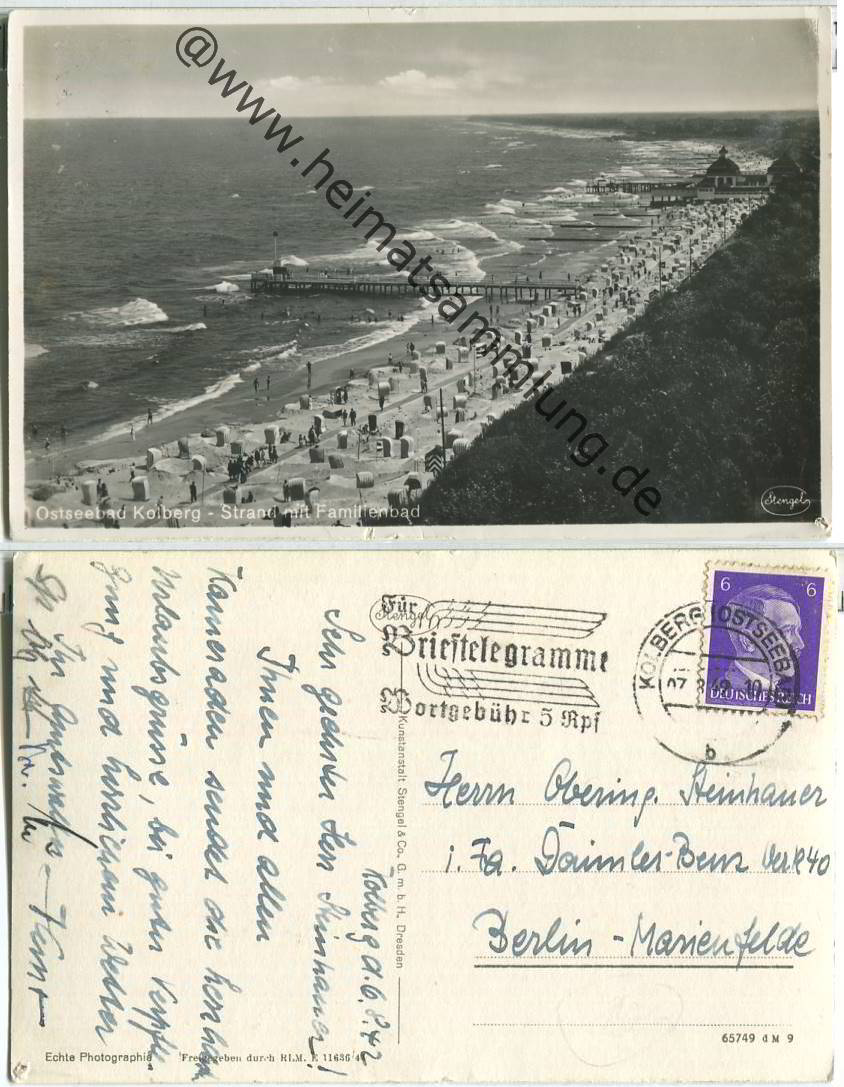 @www.heimatsammlung.de
Ostseebad Kolberg - Strand mit Familienbad
Stengel
Kolberg d. 6.8.42
Sehr geehrter Herr Steinhauer!
Ihnen und allen
Kameraden sendet die herzlichsten
Urlaubsgrüsse, bei guter Verpfle-
gung und herrlichem Wetter
Ihr
Stengel
Für
Brieftelegramme
Wortgebühr 5 Rpf
KOLBERG (OSTSEEBAD)
b
6 6
DEUTSCHES REICH
Herrn Obering. Steinhauer
i. Fa. Daimler-Benz Werk 40
Berlin - Marienfelde
Kunstanstalt Stengel & Co. G. m. b. H. Dresden
Echte Photographie
Freigegeben durch RLM.
65749 d M 9